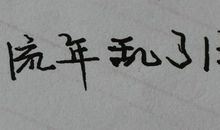 流年乱了